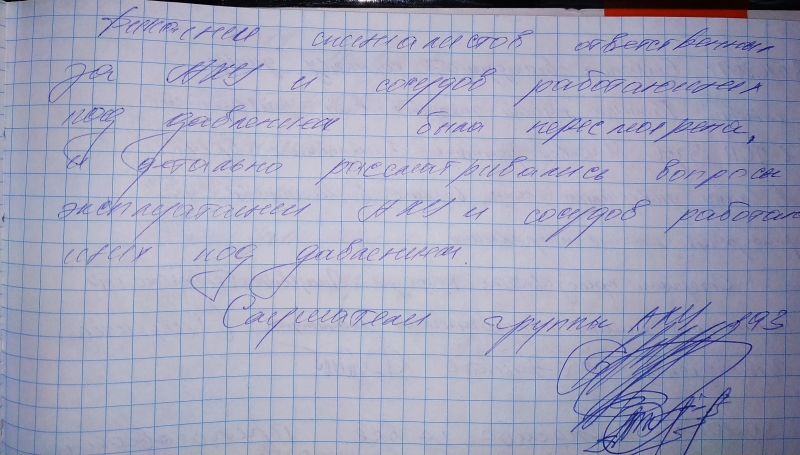 специалистов ответственных
за АХУ и сосудов работающих
под давлением была пересмотрена,
и детально рассматривались вопросы
эксплуатации АХУ и сосудов работаю
щих под давлением.
Слушатели группы АХУ